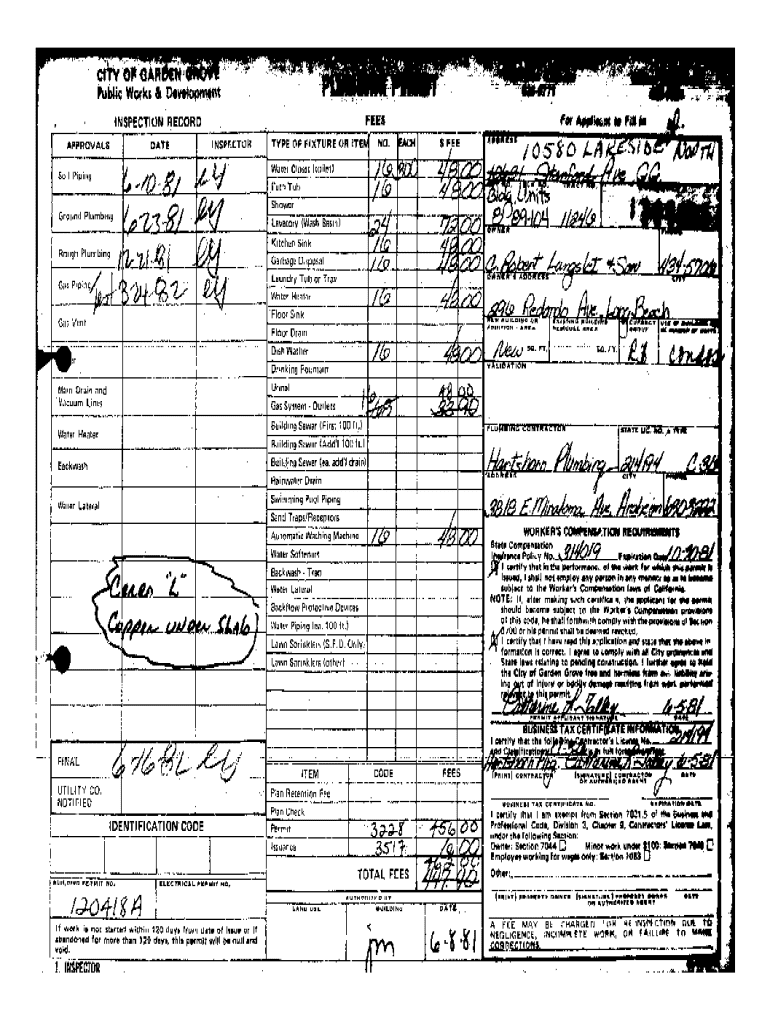 CITY OF GARDEN GROVE
Public Works & Development
PLUMBING PERMIT
INSPECTION RECORD
APPROVALS DATE INSPECTOR
Soil Piping 6-10-81
Ground Plumbing 6-23-81
Rough Plumbing 12-21-81
Gas Piping 3-24-82
Gas Vent
Main Drain and
Vacuum Lines
Water Heater
Backwash
Water Lateral
"L"
Copper under Slab
FINAL
UTILITY CO.
NOTIFIED
IDENTIFICATION CODE
BUILDING PERMIT NO. ELECTRICAL PERMIT NO.
120418A
If work is not started within 120 days from date of issue or if
abandoned for more than 120 days, this permit will be null and
void.
1. INSPECTOR
FEES
TYPE OF FIXTURE OR ITEM NO. EACH $ FEE
Water Closet (toilet) 16 300 48.00
Bath Tub 16 48.00
Shower
Lavatory (Wash Basin) 24 72.00
Kitchen Sink 16 48.00
Garbage Disposal 16 48.00
Laundry Tub or Tray
Water Heater 16 48.00
Floor Sink
Floor Drain
Dish Washer 16 48.00
Drinking Fountain
Urinal
Gas System - Outlets
Building Sewer (First 100 ft.)
Building Sewer (Add'l 100 ft.)
Building Sewer (ea. add'l drain)
Rainwater Drain
Swimming Pool Piping
Sand Traps/Receptors
Automatic Washing Machine 16 48.00
Water Softener
Backwash - Trap
Water Lateral
Backflow Protective Devices
Water Piping (ea. 100 ft.)
Lawn Sprinklers (S.F.D. Only)
Lawn Sprinklers (other)
ITEM CODE FEES
Plan Retention Fee
Plan Check
Permit 3228 456.00
Issuance 3517
TOTAL FEES
AUTHORIZED BY
LAND USE BUILDING DATE
jm 6-8-81
For Applicant to Fill in
ADDRESS
10580 LAKESIDE NORTH
Bldg Units
OWNER
C. Robert Langslet & Son
OWNER'S ADDRESS CITY
Redondo Ave. Long Beach
NEW BUILDING OR ADDITION - AREA EXISTING BUILDING
New SQ. FT. SQ. FT. Condos
VALIDATION
PLUMBING CONTRACTOR STATE LIC. NO. & TYPE
Hartshorn Plumbing 214194 C-36
ADDRESS CITY
3818 E. Miraloma Ave. Anaheim
WORKER'S COMPENSATION REQUIREMENTS
State Compensation
Insurance Policy No. 314019 Expiration Date 10-30-81
I certify that in the performance of the work for which this permit is
issued, I shall not employ any person in any manner so as to become
subject to the Worker's Compensation laws of California.
NOTE: If, after making such certificate, the applicant for the permit
should become subject to the Worker's Compensation provisions
of this code, he shall forthwith comply with the provisions of Section
3700 or his permit shall be deemed revoked.
I certify that I have read this application and state that the above in-
formation is correct. I agree to comply with all City ordinances and
State laws relating to pending construction. I further agree to hold
the City of Garden Grove free and harmless from any liability aris-
ing out of injury or bodily damage resulting from work performed
relevant to this permit.
6-5-81
PERMIT APPLICANT SIGNATURE DATE
BUSINESS TAX CERTIFICATE INFORMATION
I certify that the following Contractor's License No. 214194
and Classification is in full force
6-5-81
(PRINT) CONTRACTOR (SIGNATURE) CONTRACTOR DATE
OR AUTHORIZED AGENT
BUSINESS TAX CERTIFICATE NO. EXPIRATION DATE
I certify that I am exempt from Section 7031.5 of the Business and
Professional Code, Division 3, Chapter 9, Contractors' License Law,
under the following Section:
Owner: Section 7044 Minor work under $100: Section 7048
Employee working for wages only: Section 7053
Other:
(PRINT) PROPERTY OWNER (SIGNATURE) PROPERTY OWNER DATE
OR AUTHORIZED AGENT
A FEE MAY BE CHARGED FOR REINSPECTION DUE TO
NEGLIGENCE, INCOMPLETE WORK, OR FAILURE TO MAKE
CORRECTIONS.